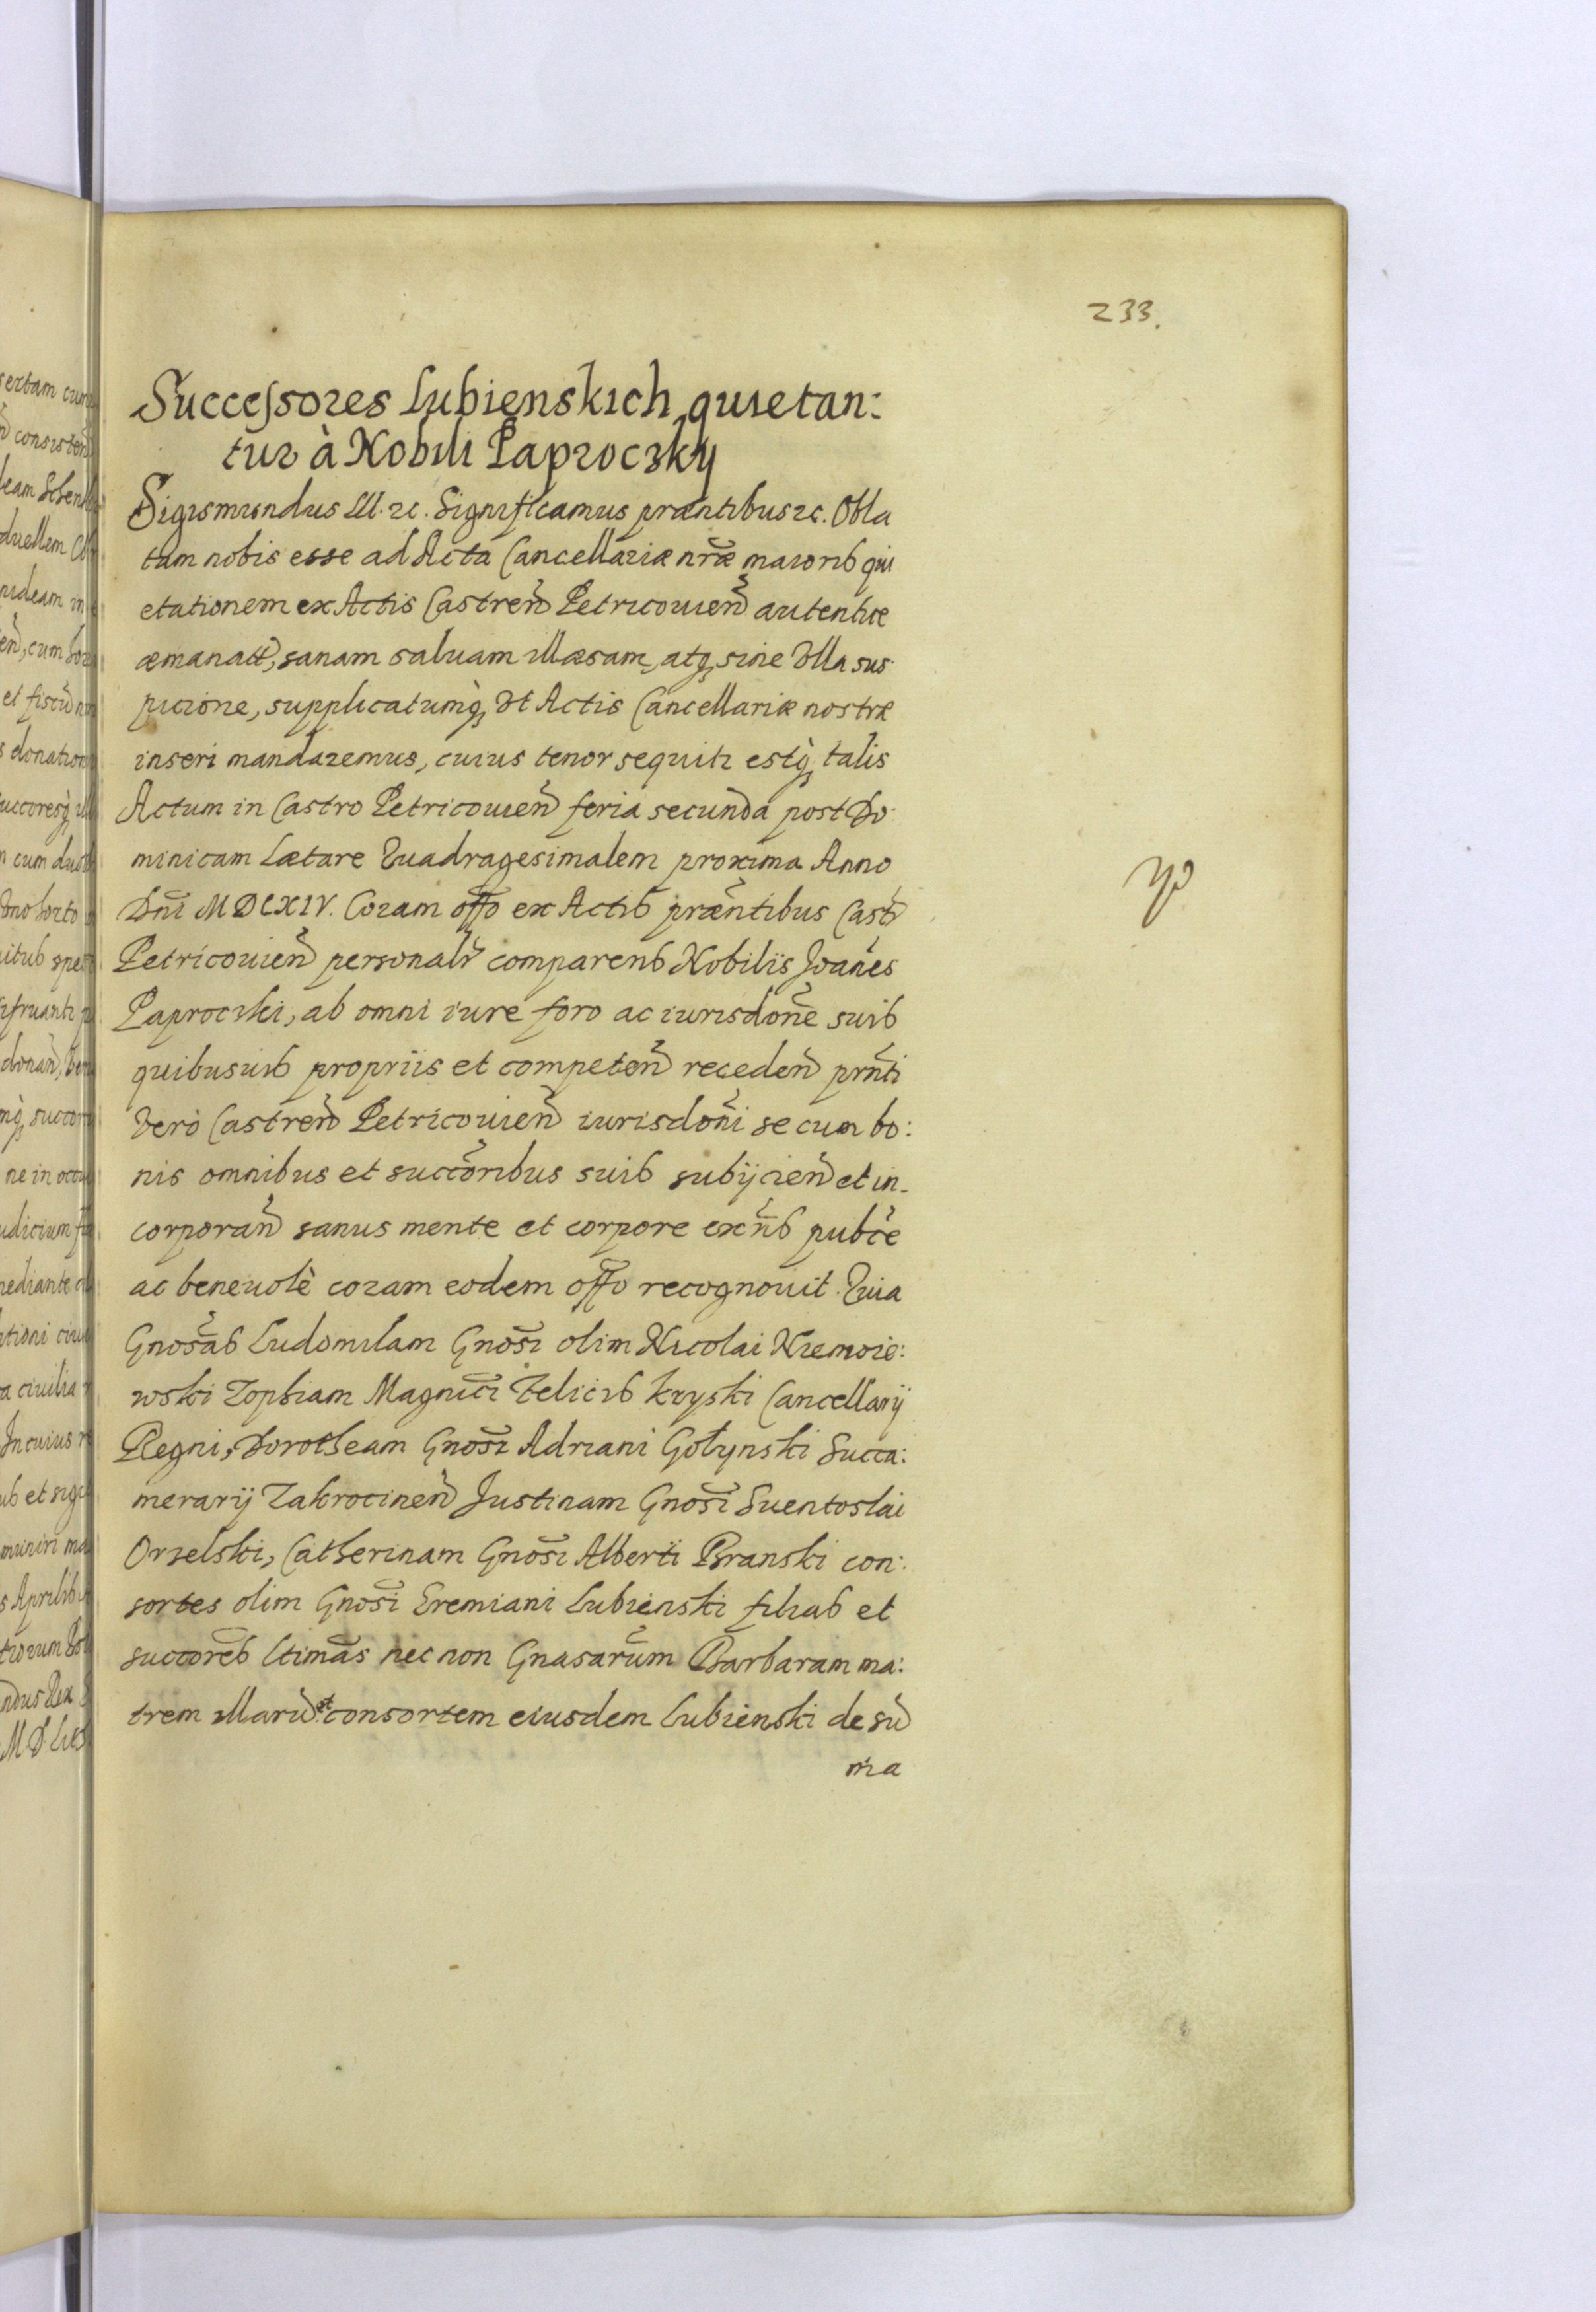 233.
Successores Lubienskich quietan:
tur à Nobili Paproczky
Sigismundus III. &c. Significamus præntibus &c. Obla
tam nobis esse ad Acta Cancellariæ nr̃æ maioris qui
etationem ex Actis Castreñ Petricouieñ autentice
æmanatt, sanam saluam illæsam, atq; sine Vlla sus:
picione, supplicatumq; Vt Actis Cancellariæ nostræ
inseri mandaremus, cuius tenor sequitr estq; talis
Actum in Castro Petricouieñ feria secunda post Do:
minicam Lætare Quadragesimalem proxima Anno
Dñi MDCXIV. Coram offo ex Actis præñtibus Castr
Petricouieñ personalr comparens Nobilis Joañes
Paprocski, ab omni iure foro ac iurisdoñe suis
quibusuis propriis et competeñ recedeñ prñti
Vero Castreñ Petricouieñ iurisdoñi se cum bo:
nis omnibus et succoribus suis subijcieñ et in-
corporañ sanus mente et corpore exñs pubce
ac beneuolè coram eodem offo recognouit. Quia
Gnosas Ludomilam Gnosi olim Nicolai Niemoie:
wski Zophiam Magnici Felicis Kryski Cancellarij
Regni, Dorotheam Gnosi Adriani Gołynski Succa:
merarij Zakrocineñ Justinam Gnosi Suentoslai
Orzelski, Catherinam Gnosi Alberti Branski con:
sortes olim Gnosi Eremiani Lubienski filias et
succores ltimas nec non Gnasarum Barbaram ma:
trem illarũ et consortem eiusdem Lubienski de sũ
ma